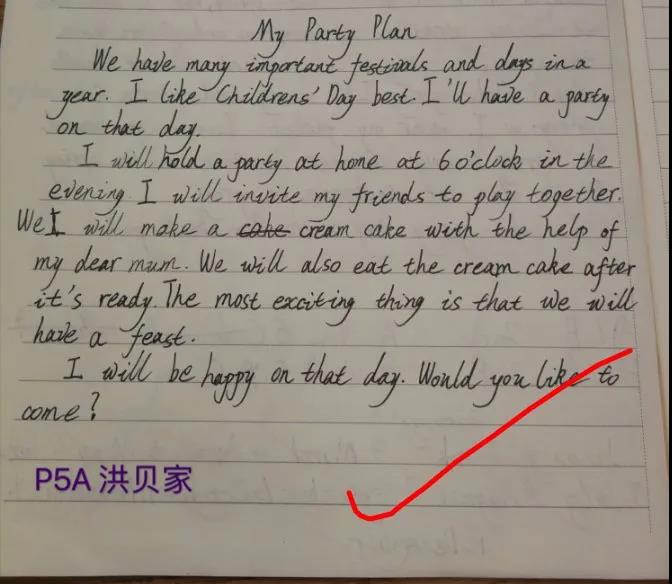 My Party Plan
We have many important festivals and days in a
year. I like Childrens' Day best. I'll have a party
on that day.
I will hold a party at home at 6 o'clock in the
evening. I will invite my friends to play together.
We I will make a cake cream cake with the help of
my dear mum. We will also eat the cream cake after
it's ready. The most exciting thing is that we will
have a feast.
I will be happy on that day. Would you like to
come?
P5A 洪贝家